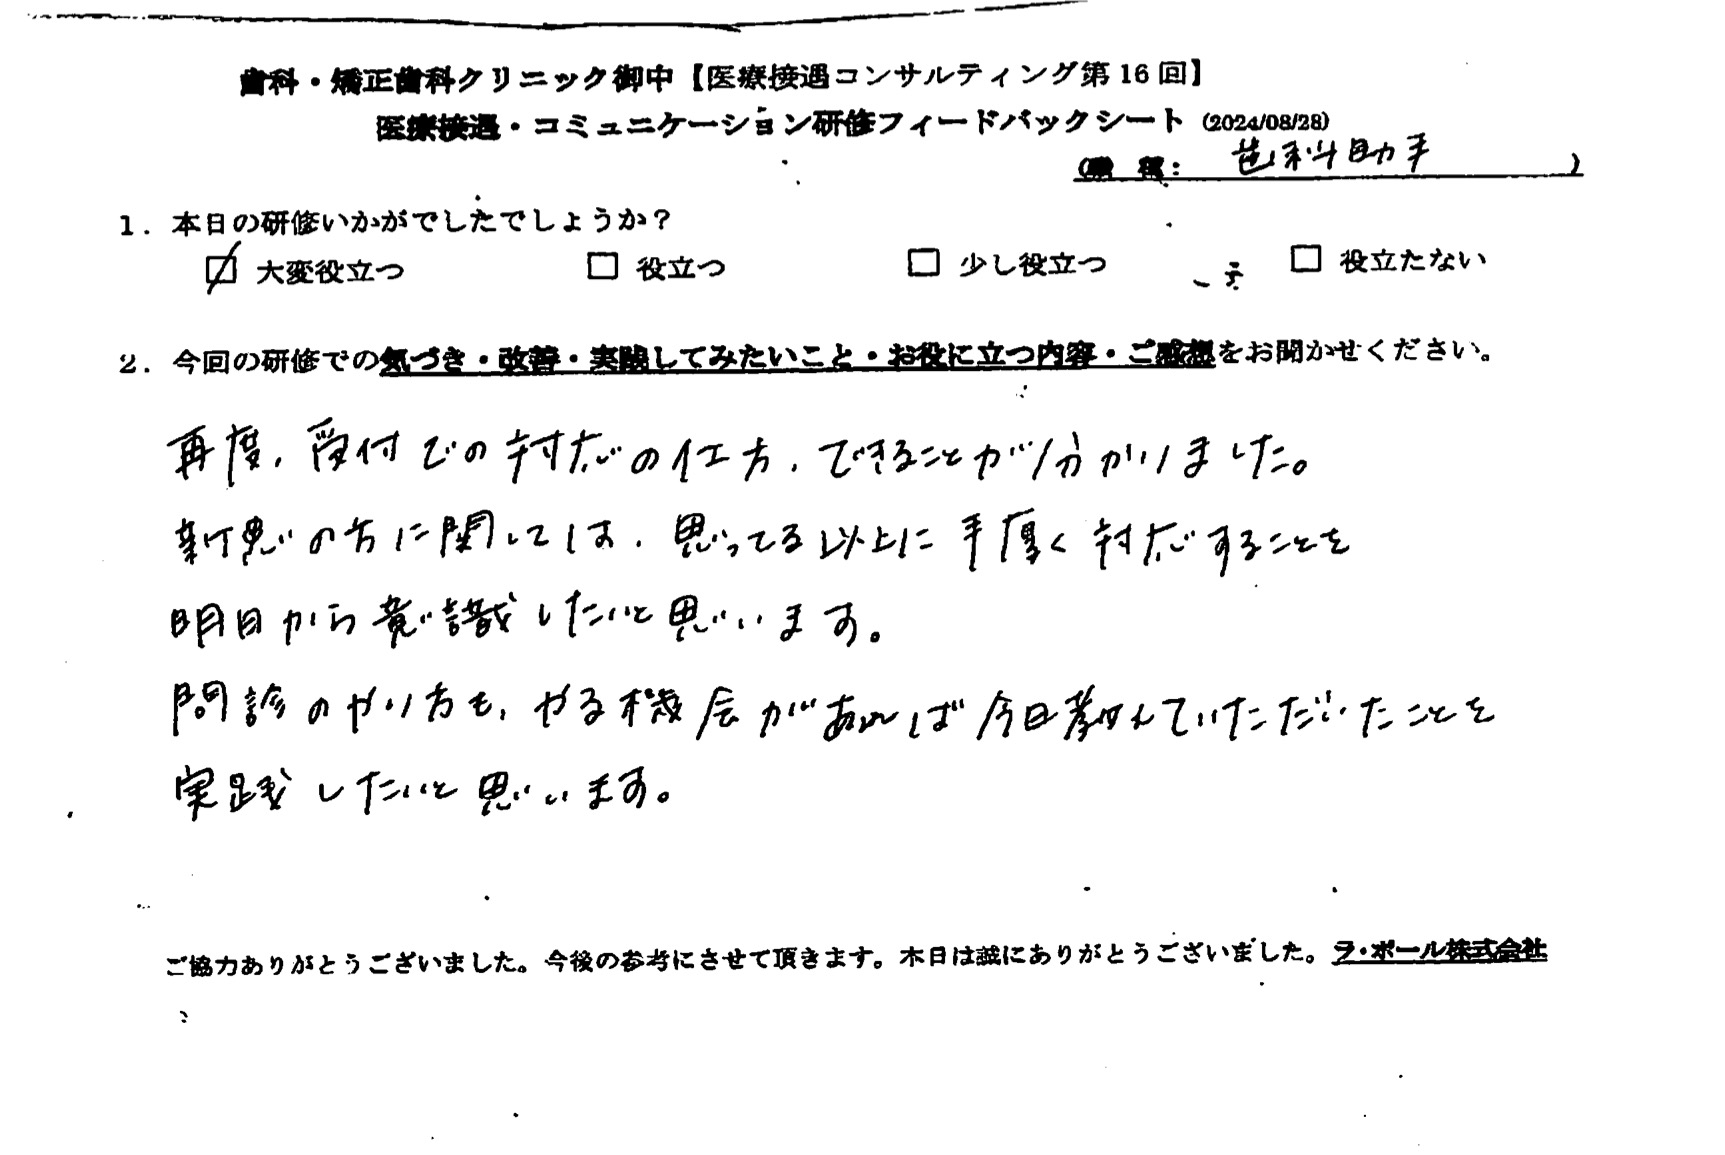 歯科・矯正歯科クリニック御中【医療接遇コンサルティング第16回】
医療接遇・コミュニケーション研修フィードバックシート (2024/08/28)
(職 種: 歯科助手 )
1. 本日の研修いかがでしたでしょうか?
☑ 大変役立つ □ 役立つ □ 少し役立つ □ 役立たない
2. 今回の研修での気づき・改善・実践してみたいこと・お役に立つ内容・ご感想をお聞かせください。
再度、受付での対応の仕方、できることが分かりました。
新患の方に関しては、思ってる以上に手厚く対応することを
明日から意識したいと思います。
問診のやり方も、やる機会があれば今日教えていただいたことを
実践したいと思います。
ご協力ありがとうございました。今後の参考にさせて頂きます。本日は誠にありがとうございました。ラ・ポール株式会社